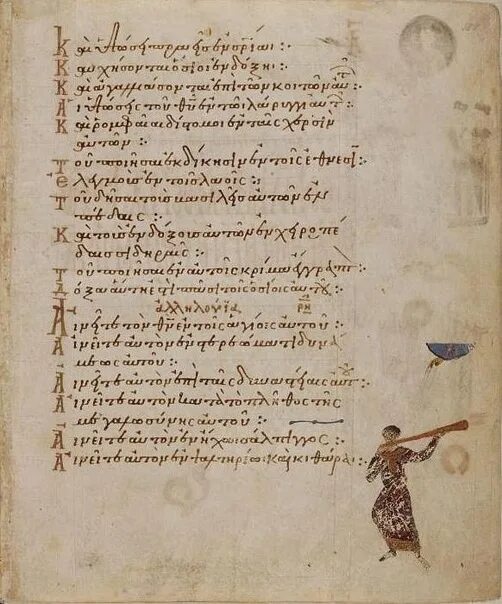 Καὶ ὑψώσει πραεῖς ἐν σρίαι :·
Καυχήσονται ὅσιοι ἐν δόξηι :·
Καὶ ἀγαλλιάσονται ἐπὶ τῶν κοιτῶν αὐτ
Αἱ ὑψώσεις τοῦ θυ ἐν τῶι λάρυγγι αὐτ
Καὶ ῥομφαῖαι δίστομοι ἐν ταῖς χερσὶν
αὐτῶν :·
Τοῦ ποιῆσαι ἐκδίκησιν ἐν τοῖς ἔθνεσι
Ἐλεγμοὺς ἐν τοῖς λαοῖς :·
Τοῦ δῆσαι τοὺς βασιλεῖς αὐτῶν ἐν
πέδαις :·
Καὶ τοὺς ἐνδόξους αὐτῶν ἐν χειροπέ
δαις σιδηραῖς :·
Τοῦ ποιῆσαι ἐν αὐτοῖς κρίμα ἔγγραπτ
Δόξα αὕτη ἐστὶ πᾶσι τοῖς ὁσίοις αὐτοῦ
ἀλληλούϊα
Αἰνεῖτε τὸν θν ἐν τοῖς ἁγίοις αὐτοῦ :
Αἰνεῖτε αὐτὸν ἐν στερεώματι δυνά
μεως αὐτοῦ :·
Αἰνεῖτε αὐτὸν ἐπὶ ταῖς δυναστείαις αὐτ
Αἰνεῖτε αὐτὸν κατὰ τὸ πλῆθος τῆς
μεγαλωσύνης αὐτοῦ :·
Αἰνεῖτε αὐτὸν ἐν ἤχωι σάλπιγγος :·
Αἰνεῖτε αὐτὸν ἐν ψαλτηρίωι καὶ κιθάραι :·